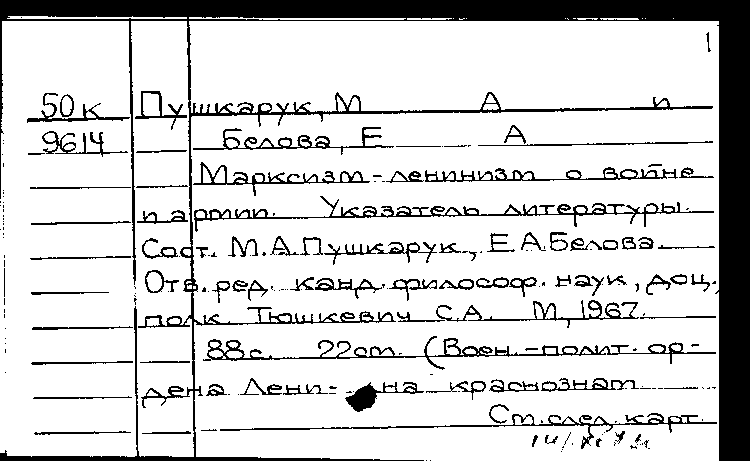 1
50к Пушкарук, М А и
9614 Белова, Е А
Марксизм-ленинизм о войне
и армии. Указатель литературы.
Сост. М.А.Пушкарук, Е.А.Белова.
Отв.ред. канд.философ.наук, доц.,
полк. Тюшкевич С.А. М., 1967.
88с. 22см. (Воен.-полит. ор-
дена Лени- на краснознам
См.след.карт.